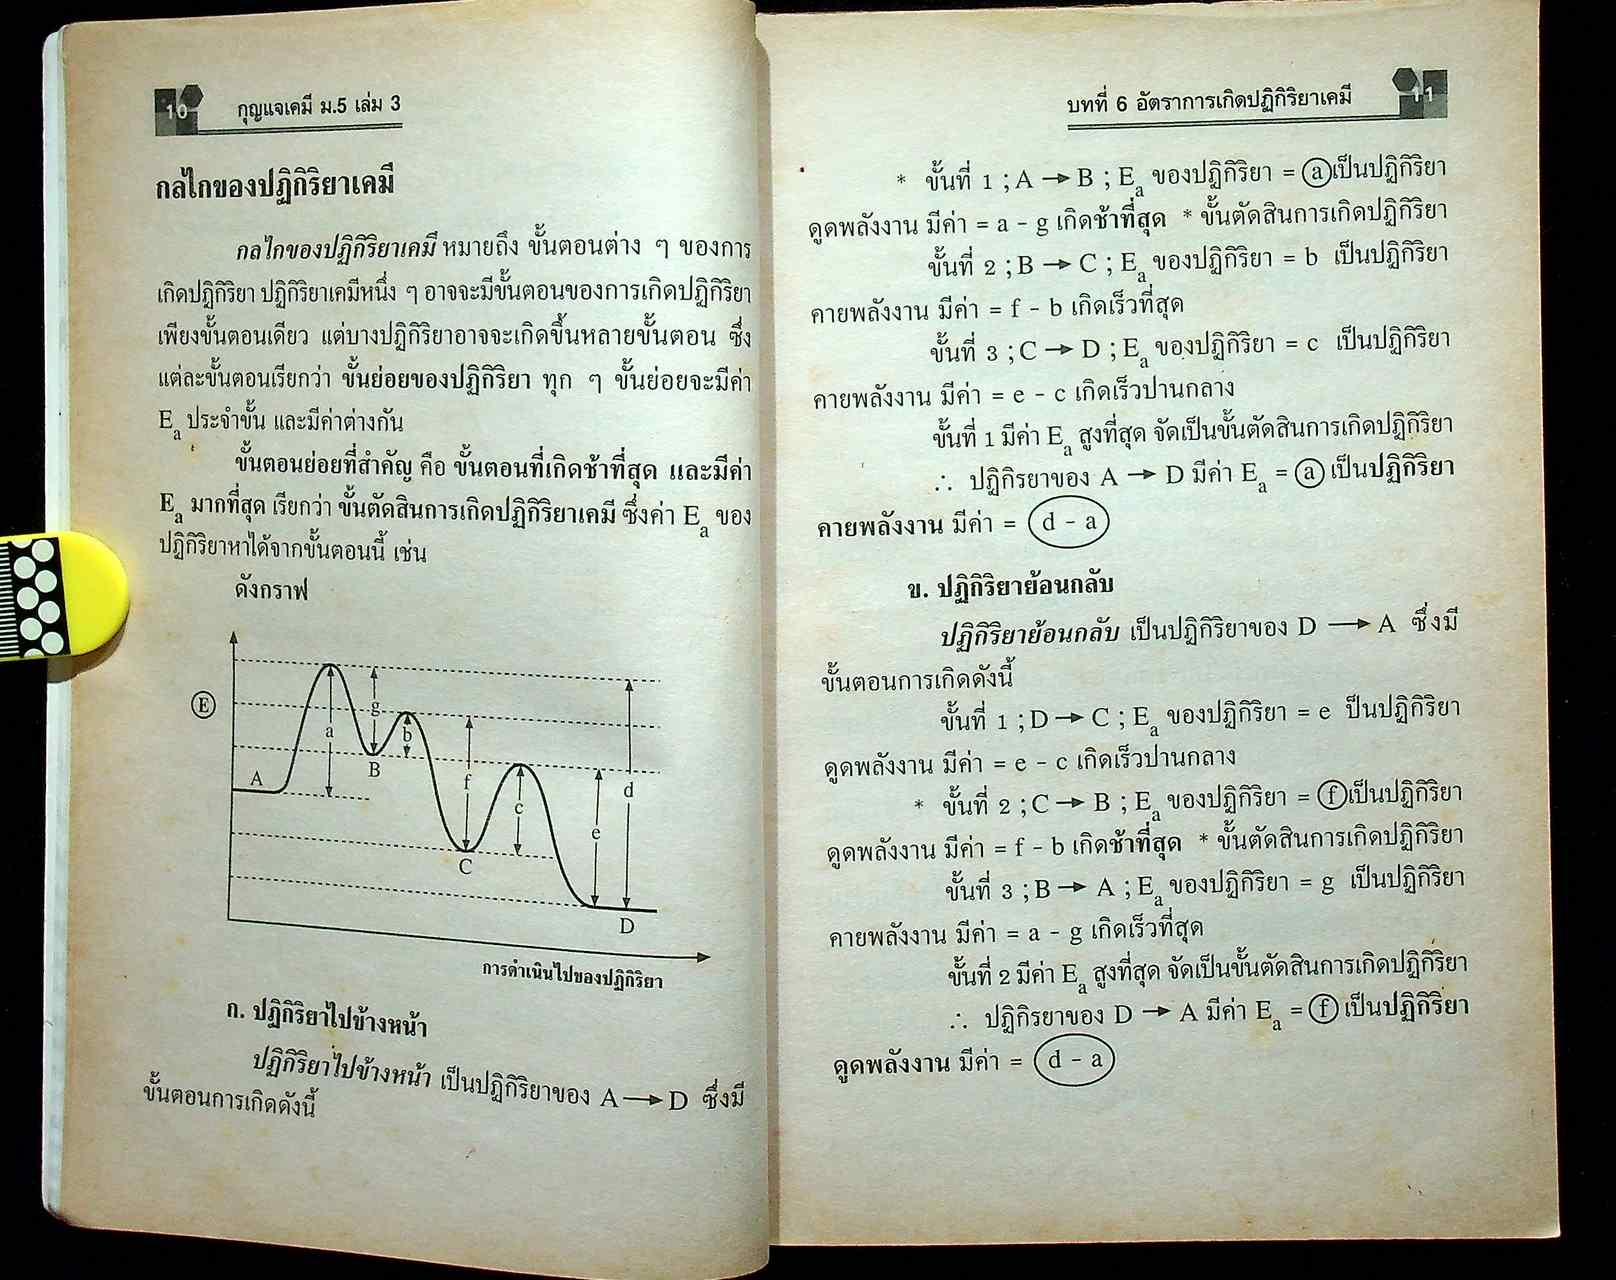 10
กุญแจเคมี ม.5 เล่ม 3
กลไกของปฏิกิริยาเคมี
กลไกของปฏิกิริยาเคมี หมายถึง ขั้นตอนต่าง ๆ ของการ
เกิดปฏิกิริยา ปฏิกิริยาเคมีหนึ่ง ๆ อาจจะมีขั้นตอนของการเกิดปฏิกิริยา
เพียงขั้นตอนเดียว แต่บางปฏิกิริยาอาจจะเกิดขึ้นหลายขั้นตอน ซึ่ง
แต่ละขั้นตอนเรียกว่า ขั้นย่อยของปฏิกิริยา ทุก ๆ ขั้นย่อยจะมีค่า
Ea ประจำขั้น และมีค่าต่างกัน
ขั้นตอนย่อยที่สำคัญ คือ ขั้นตอนที่เกิดช้าที่สุด และมีค่า
Ea มากที่สุด เรียกว่า ขั้นตัดสินการเกิดปฏิกิริยาเคมี ซึ่งค่า Ea ของ
ปฏิกิริยาหาได้จากขั้นตอนนี้ เช่น
ดังกราฟ
E
A
a
g
B
b
f
C
c
e
d
D
การดำเนินไปของปฏิกิริยา
ก. ปฏิกิริยาไปข้างหน้า
ปฏิกิริยาไปข้างหน้า เป็นปฏิกิริยาของ A → D ซึ่งมี
ขั้นตอนการเกิดดังนี้
บทที่ 6 อัตราการเกิดปฏิกิริยาเคมี
11
* ขั้นที่ 1 ; A → B ; Ea ของปฏิกิริยา = a เป็นปฏิกิริยา
ดูดพลังงาน มีค่า = a - g เกิดช้าที่สุด * ขั้นตัดสินการเกิดปฏิกิริยา
ขั้นที่ 2 ; B → C ; Ea ของปฏิกิริยา = b เป็นปฏิกิริยา
คายพลังงาน มีค่า = f - b เกิดเร็วที่สุด
ขั้นที่ 3 ; C → D ; Ea ของปฏิกิริยา = c เป็นปฏิกิริยา
คายพลังงาน มีค่า = e - c เกิดเร็วปานกลาง
ขั้นที่ 1 มีค่า Ea สูงที่สุด จัดเป็นขั้นตัดสินการเกิดปฏิกิริยา
∴ ปฏิกิรยาของ A → D มีค่า Ea = a เป็นปฏิกิริยา
คายพลังงาน มีค่า = d - a
ข. ปฏิกิริยาย้อนกลับ
ปฏิกิริยาย้อนกลับ เป็นปฏิกิริยาของ D → A ซึ่งมี
ขั้นตอนการเกิดดังนี้
ขั้นที่ 1 ; D → C ; Ea ของปฏิกิริยา = e ป็นปฏิกิริยา
ดูดพลังงาน มีค่า = e - c เกิดเร็วปานกลาง
* ขั้นที่ 2 ; C → B ; Ea ของปฏิกิริยา = f เป็นปฏิกิริยา
ดูดพลังงาน มีค่า = f - b เกิดช้าที่สุด * ขั้นตัดสินการเกิดปฏิกิริยา
ขั้นที่ 3 ; B → A ; Ea ของปฏิกิริยา = g เป็นปฏิกิริยา
คายพลังงาน มีค่า = a - g เกิดเร็วที่สุด
ขั้นที่ 2 มีค่า Ea สูงที่สุด จัดเป็นขั้นตัดสินการเกิดปฏิกิริยา
∴ ปฏิกิรยาของ D → A มีค่า Ea = f เป็นปฏิกิริยา
ดูดพลังงาน มีค่า = d - a